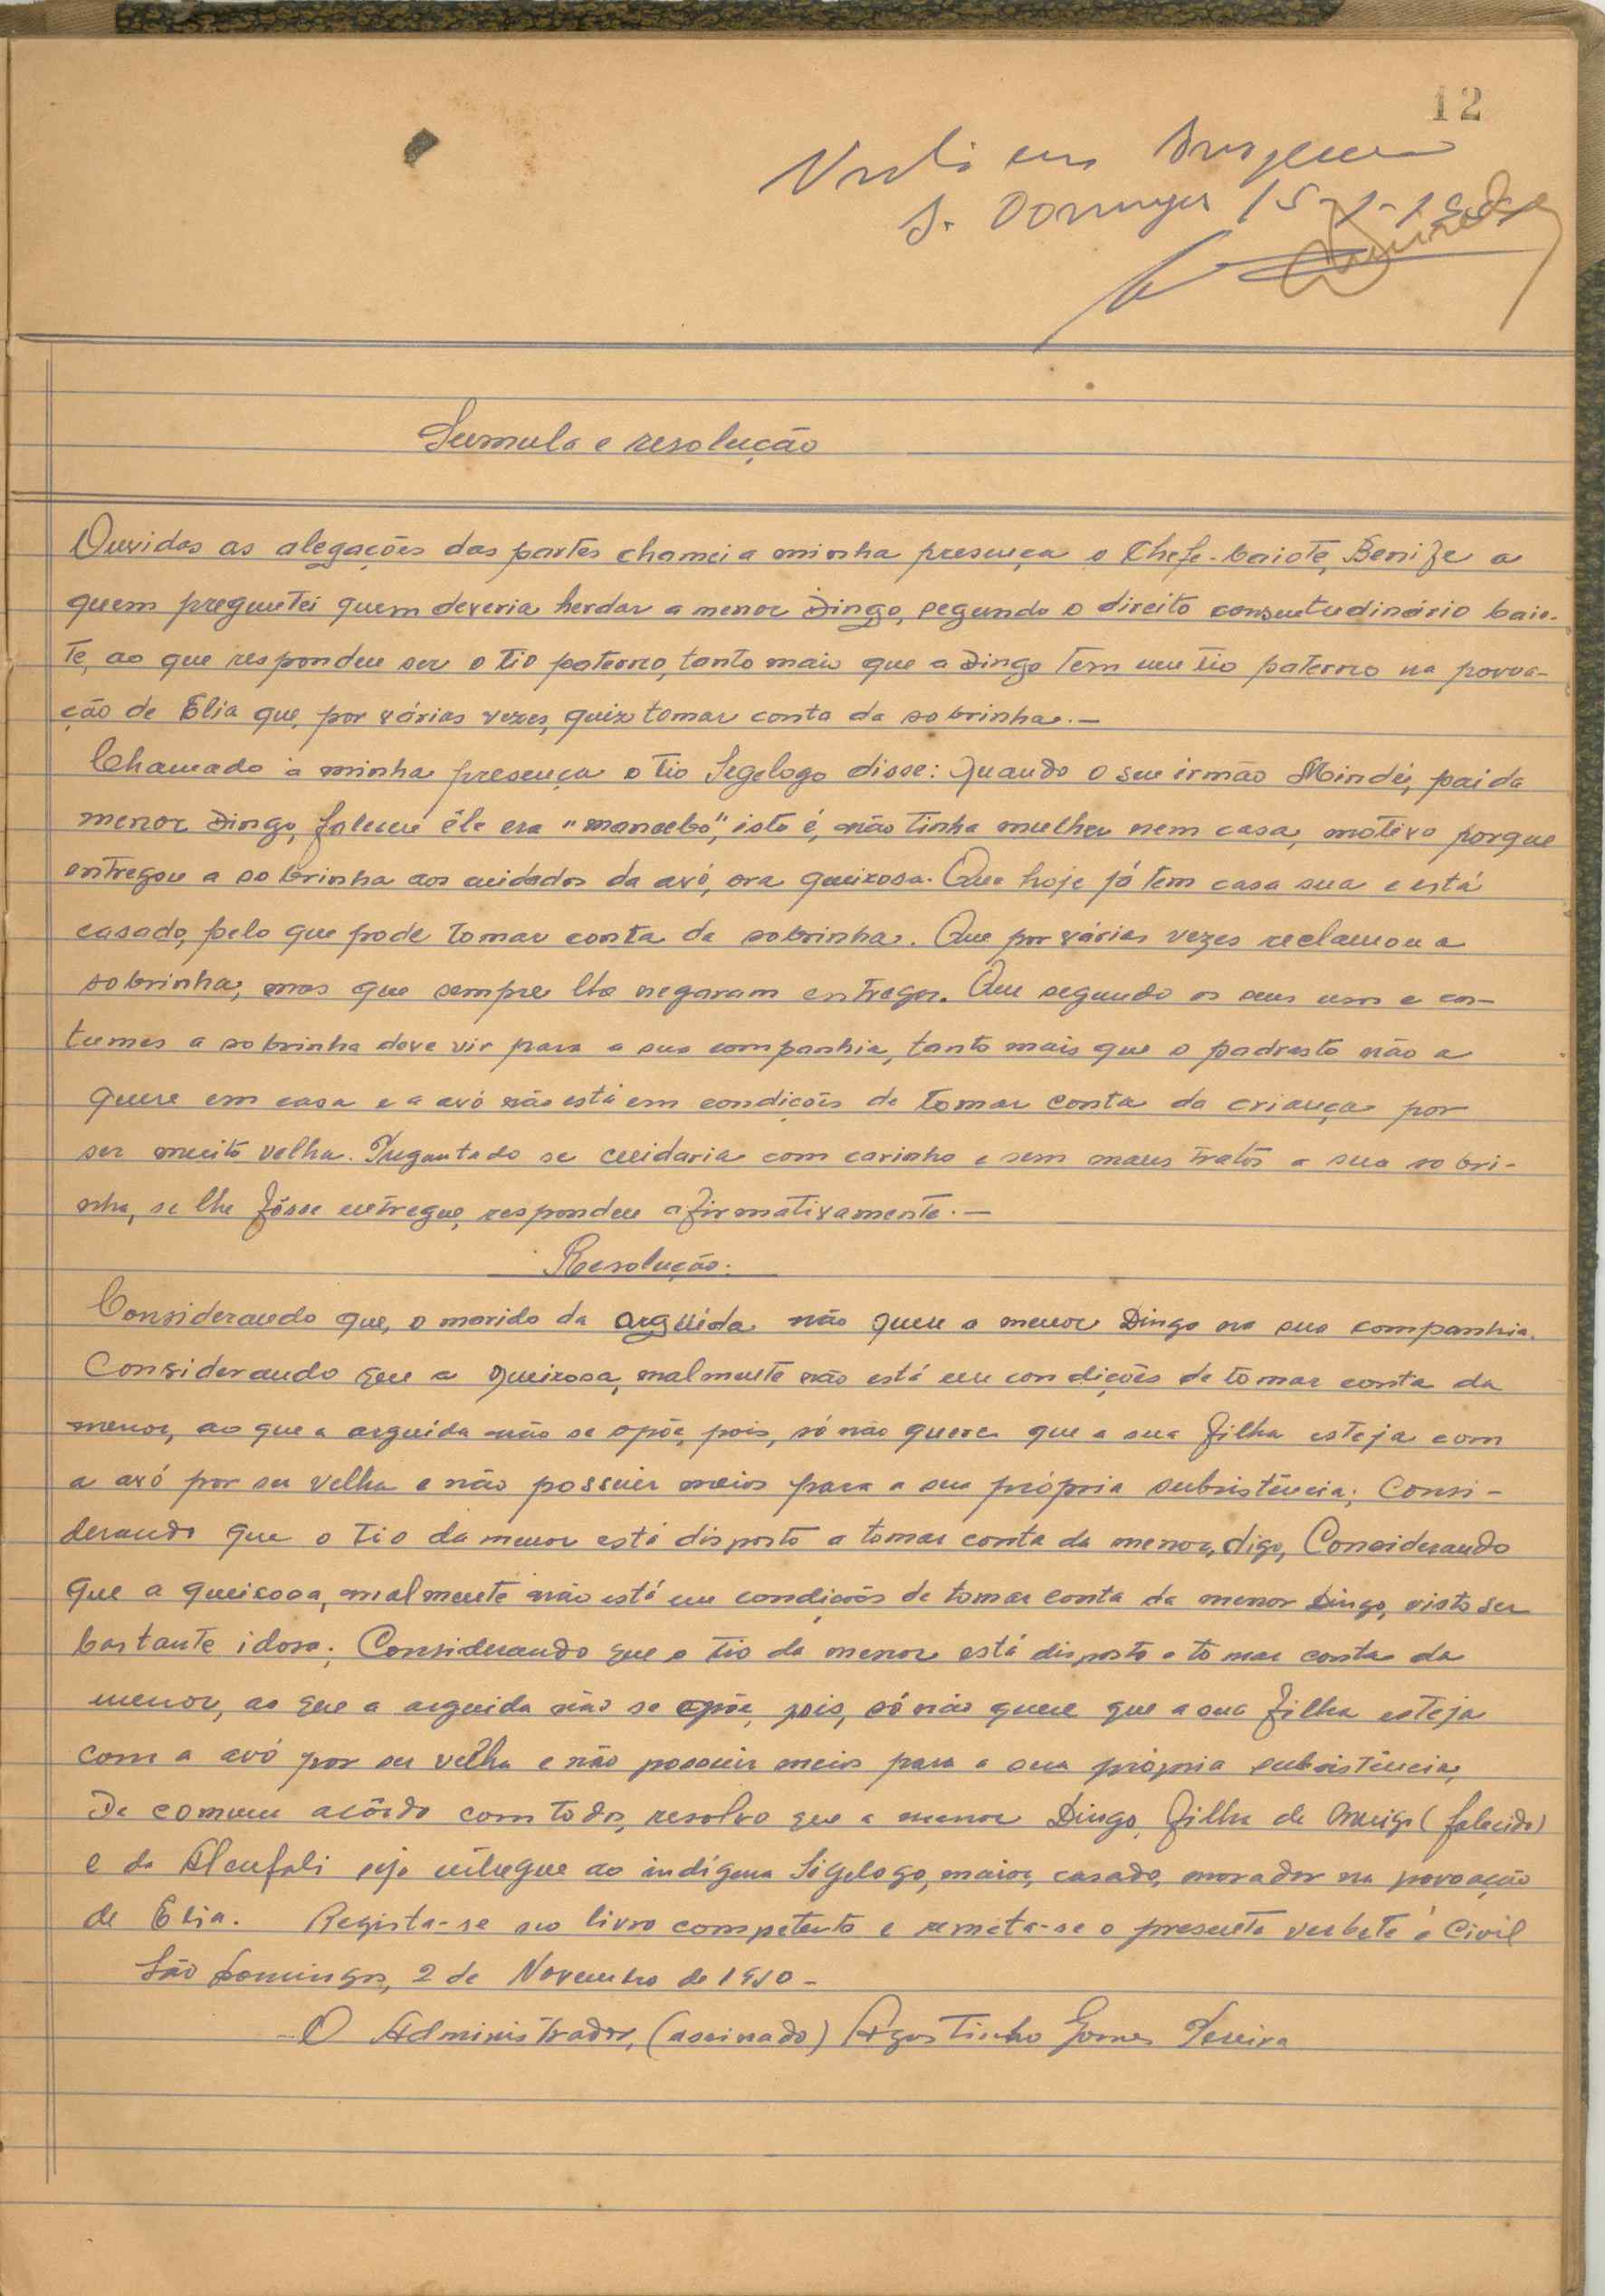 12
S. Domingos 15-1-19
Sumula e resolução
Ouvidas as alegações das partes chamei a minha presença o Chefe-baiote, Benife a
quem preguntei quem deveria herdar a menor Dingo, segundo o direito consuetudinário baio-
te, ao que respondeu ser o tio paterno, tanto mais que a Dingo tem um tio paterno na povoa-
ção de Elia que, por várias vezes, quiz tomar conta da sobrinha.—
Chamado à minha presença o tio Segelogo disse: Quando o seu irmão Moindé, pai da
menor Dingo, faleceu êle era "mancebo", isto é, não tinha mulher nem casa, motivo porque
entregou a sobrinha aos cuidados da avó, ora queixosa. Que hoje já tem casa sua e está
casado, pelo que pode tomar conta da sobrinha. Que por várias vezes reclamou a
sobrinha, mas que sempre lha negaram entregar. Que segundo os seus usos e cos-
tumes a sobrinha deve vir para a sua companhia, tanto mais que o padrasto não a
quere em casa e a avó não está em condições de tomar conta da criança por
ser muito velha. Preguntado se cuidaria com carinho e sem maus tratos a sua sobri-
nha, se lhe fôsse entregue, respondeu afirmativamente.—
Resolução.
Considerando que, o marido da argüida não quere a menor Dingo na sua companhia.
Considerando que a queixosa, malmente não está em condições de tomar conta da
menor, ao que a arguida não se opõe, pois, só não quere que a sua filha esteja com
a avó por ser velha e não possuir meios para a sua própria subsistência; Consi-
derando que o tio da menor está disposto a tomar conta da menor, digo, Considerando
que a queixosa, malmente não está em condições de tomar conta da menor Dingo, visto ser
bastante idosa; Considerando que o tio da menor está disposto a tomar conta da
menor, ao que a arguida não se opõe, pois, só não quere que a sua filha esteja
com a avó por ser velha e não possuir meios para a sua própria subsistência,
De comum acôrdo com todos, resolvo que a menor Dingo, filha de (falecido)
e da seja entregue ao indígena Sigelogo, maior, casado, morador na povoação
de Elia. Regista-se no livro competente e remeta-se o presente verbete á Civil
São Domingos, 2 de Novembro de
O Administrador, (assinado) Agostinho Gomes Pereira